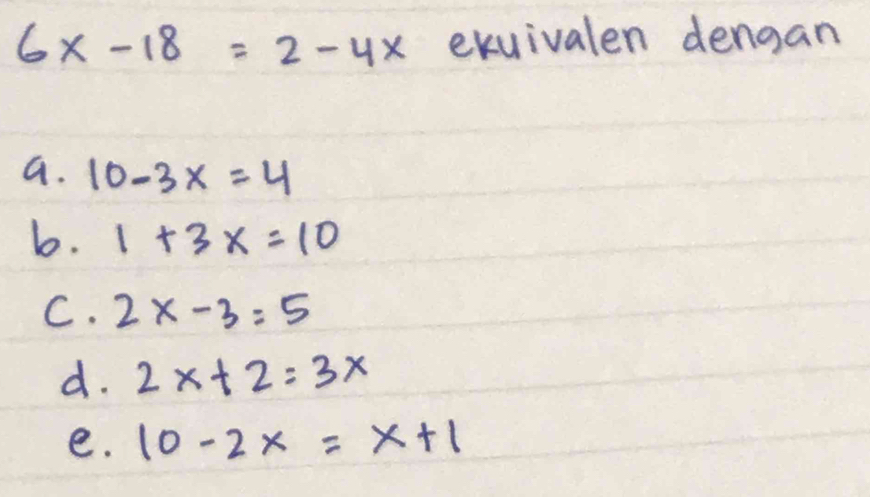 6x - 18 = 2 - 4x ekuivalen dengan
a. 10 - 3x = 4
b. 1 + 3x = 10
c. 2x - 3 = 5
d. 2x + 2 = 3x
e. 10 - 2x = x + 1